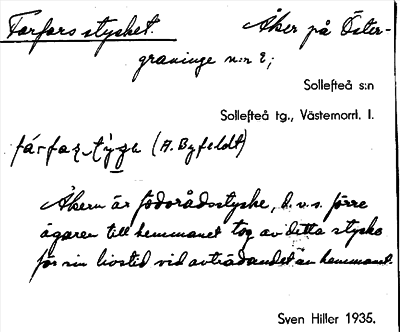 Farfarsstycket. Åker på Öster-
graninge n:r 2;
Sollefteå s:n
Sollefteå tg., Västernorrl. l.
(A. Byfeldt)
Åkern är födorådsstycke, d.v.s. förre
ägaren till hemmanet tog av detta stycke
för sin livstid vid avträdandet av hemmanet.
Sven Hiller 1935.